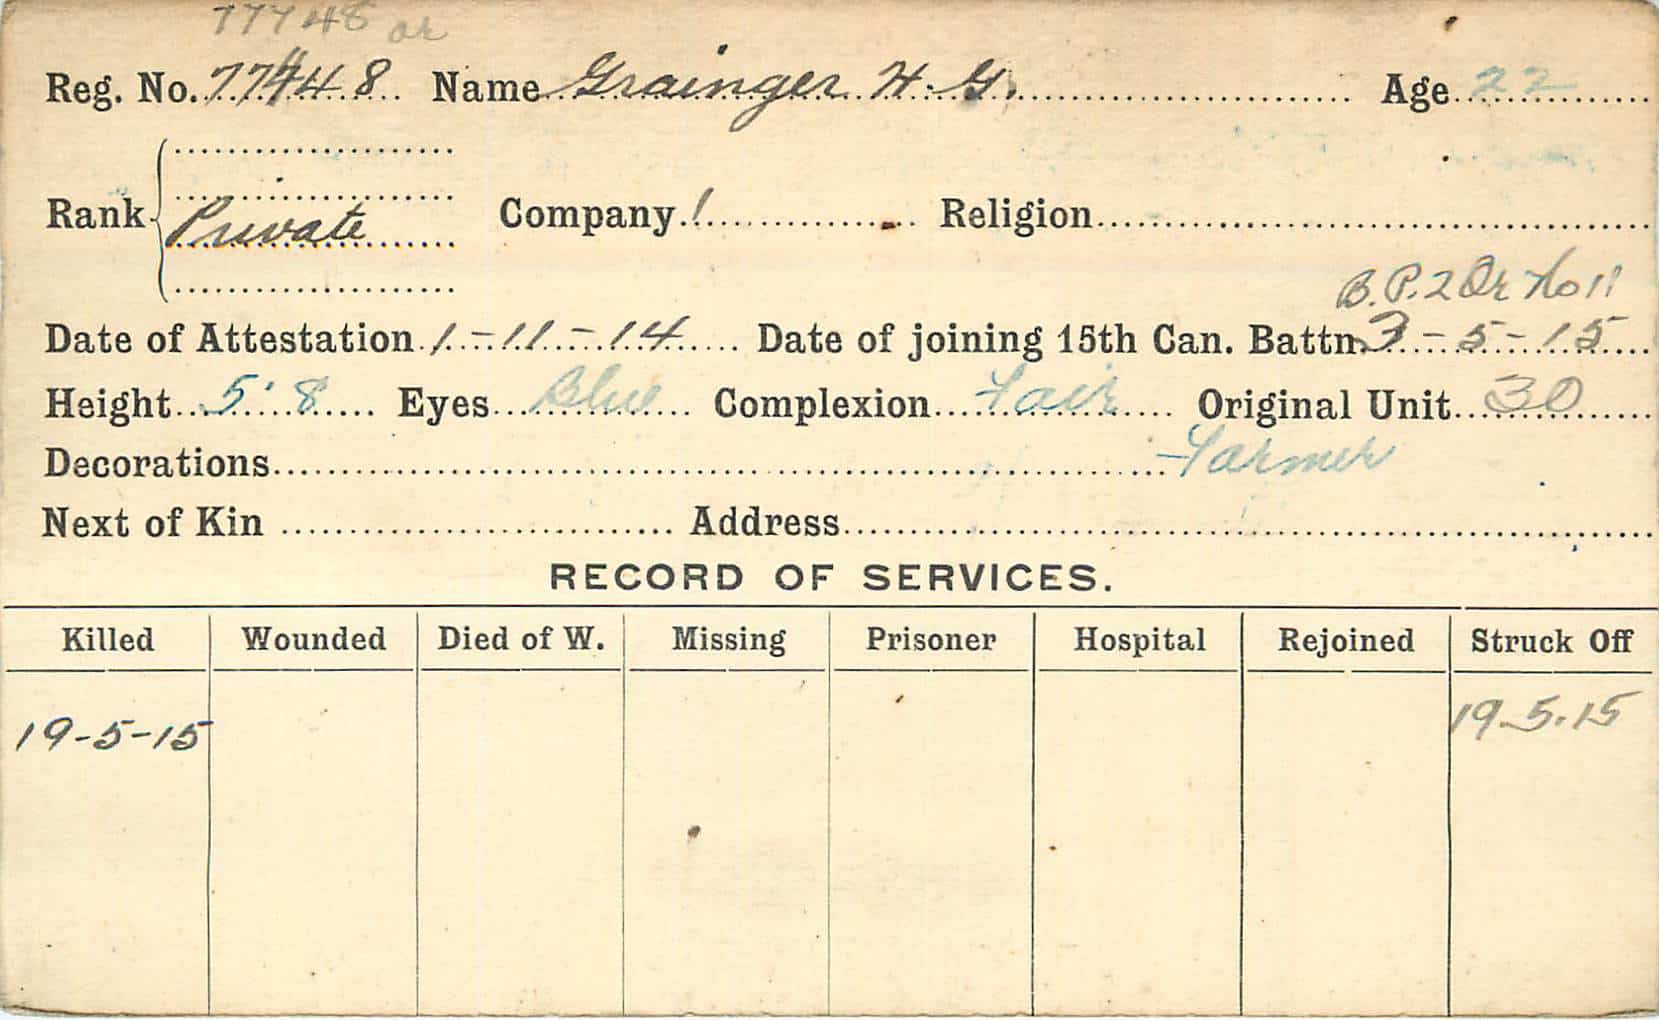 77748 or
Reg. No. 77448 Name Grainger H. G. Age 22
Rank Private Company 1 Religion
B.P. 2 Or No 11
Date of Attestation 1-11-14 Date of joining 15th Can. Battn. 3-5-15
Height 5' 8 Eyes Blue Complexion Fair Original Unit 30
Decorations Farmer
Next of Kin Address
RECORD OF SERVICES.
Killed Wounded Died of W. Missing Prisoner Hospital Rejoined Struck Off
19-5-15 19.5.15